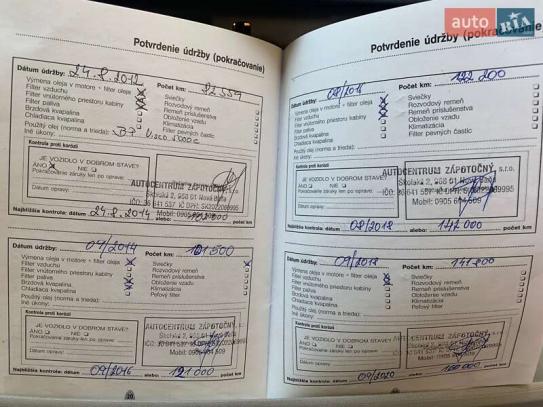 auto RIA
Potvrdenie údržby (pokračovanie)
Dátum údržby: 24.8.2012 Počet km:
Výmena oleja v motore + filter oleja
Filter vzduchu
Filter vnútorného priestoru kabíny
Filter paliva
Brzdová kvapalina
Chladiaca kvapalina
Sviečky
Rozvodový remeň
Remeň príslušenstva
Obloženie vzadu
Klimatizácia
Filter pevných častíc
Použitý olej (norma a trieda): BP Visco 5000 C
Iné úkony:
Kontrola proti korózii
JE VOZIDLO V DOBROM STAVE?
ÁNO NIE
Pokračovanie záruky len po oprave:
Dátum opravy:
AUTOCENTRUM ZÁPOTOČNÝ
Školská 2, 968 01 Nová Baňa
Najbližšia kontrola: dátum 24.8.2014 alebo: počet km
Dátum údržby: 04/2014 Počet km: 101 500
Výmena oleja v motore + filter oleja
Filter vzduchu
Filter vnútorného priestoru kabíny
Filter paliva
Brzdová kvapalina
Chladiaca kvapalina
Sviečky
Rozvodový remeň
Remeň príslušenstva
Obloženie vzadu
Klimatizácia
Peľový filter
Použitý olej (norma a trieda):
Iné úkony:
Kontrola proti korózii
JE VOZIDLO V DOBROM STAVE?
ÁNO NIE
Pokračovanie záruky len po oprave:
Dátum opravy:
AUTOCENTRUM ZÁPOTOČNÝ
Mobil: 0905 604 509
Najbližšia kontrola: dátum: 09/2016 alebo: 121 000 počet km
20
Potvrdenie údržby (pokračovanie)
Dátum údržby: Počet km: 122 200
Výmena oleja v motore + filter oleja
Filter vzduchu
Filter vnútorného priestoru kabíny
Filter paliva
Brzdová kvapalina
Chladiaca kvapalina
Sviečky
Rozvodový remeň
Remeň príslušenstva
Obloženie vzadu
Klimatizácia
Filter pevných častíc
Použitý olej (norma a trieda):
Iné úkony:
Kontrola proti korózii
JE VOZIDLO V DOBROM STAVE?
ÁNO NIE
Pokračovanie záruky len po oprave:
Dátum opravy:
AUTOCENTRUM ZÁPOTOČNÝ s.r.o.
Školská 2, 968 01 Nová Baňa
Mobil: 0905 604 509
Najbližšia kontrola: dátum: 08/2018 alebo: 142 000 počet km
Dátum údržby: 09/2018 Počet km: 141 800
Výmena oleja v motore + filter oleja
Filter vzduchu
Filter vnútorného priestoru kabíny
Filter paliva
Brzdová kvapalina
Chladiaca kvapalina
Sviečky
Rozvodový remeň
Remeň príslušenstva
Obloženie vzadu
Klimatizácia
Filter pevných častíc
Použitý olej (norma a trieda):
Iné úkony:
Kontrola proti korózii
JE VOZIDLO V DOBROM STAVE?
ÁNO NIE
Pokračovanie záruky len po oprave:
Dátum opravy:
AUTOCENTRUM ZÁPOTOČNÝ
Najbližšia kontrola: dátum: 09/2020 alebo: 160 000 počet km